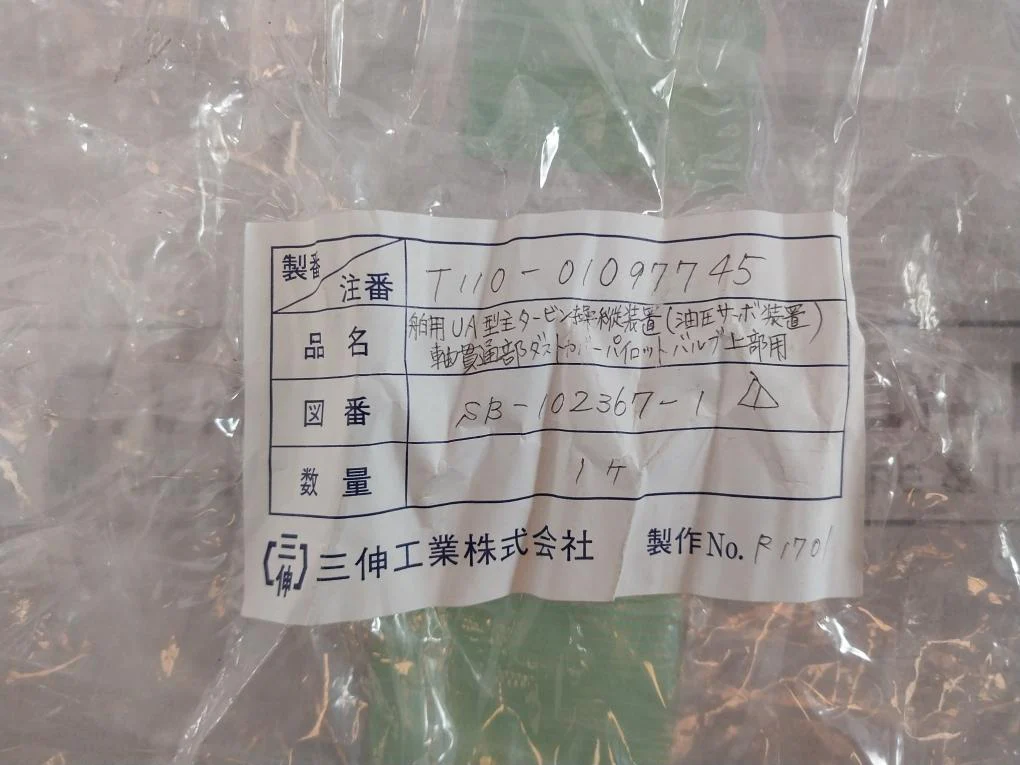 製番
注番
T110-01097745
品名
舶用UA型主タービン操縦装置(油圧サーボ装置)
軸貫通部ダストカバーパイロットバルブ上部用
図番
SB-102367-1
数量
1ケ
[三伸] 三伸工業株式会社 製作No. R1701